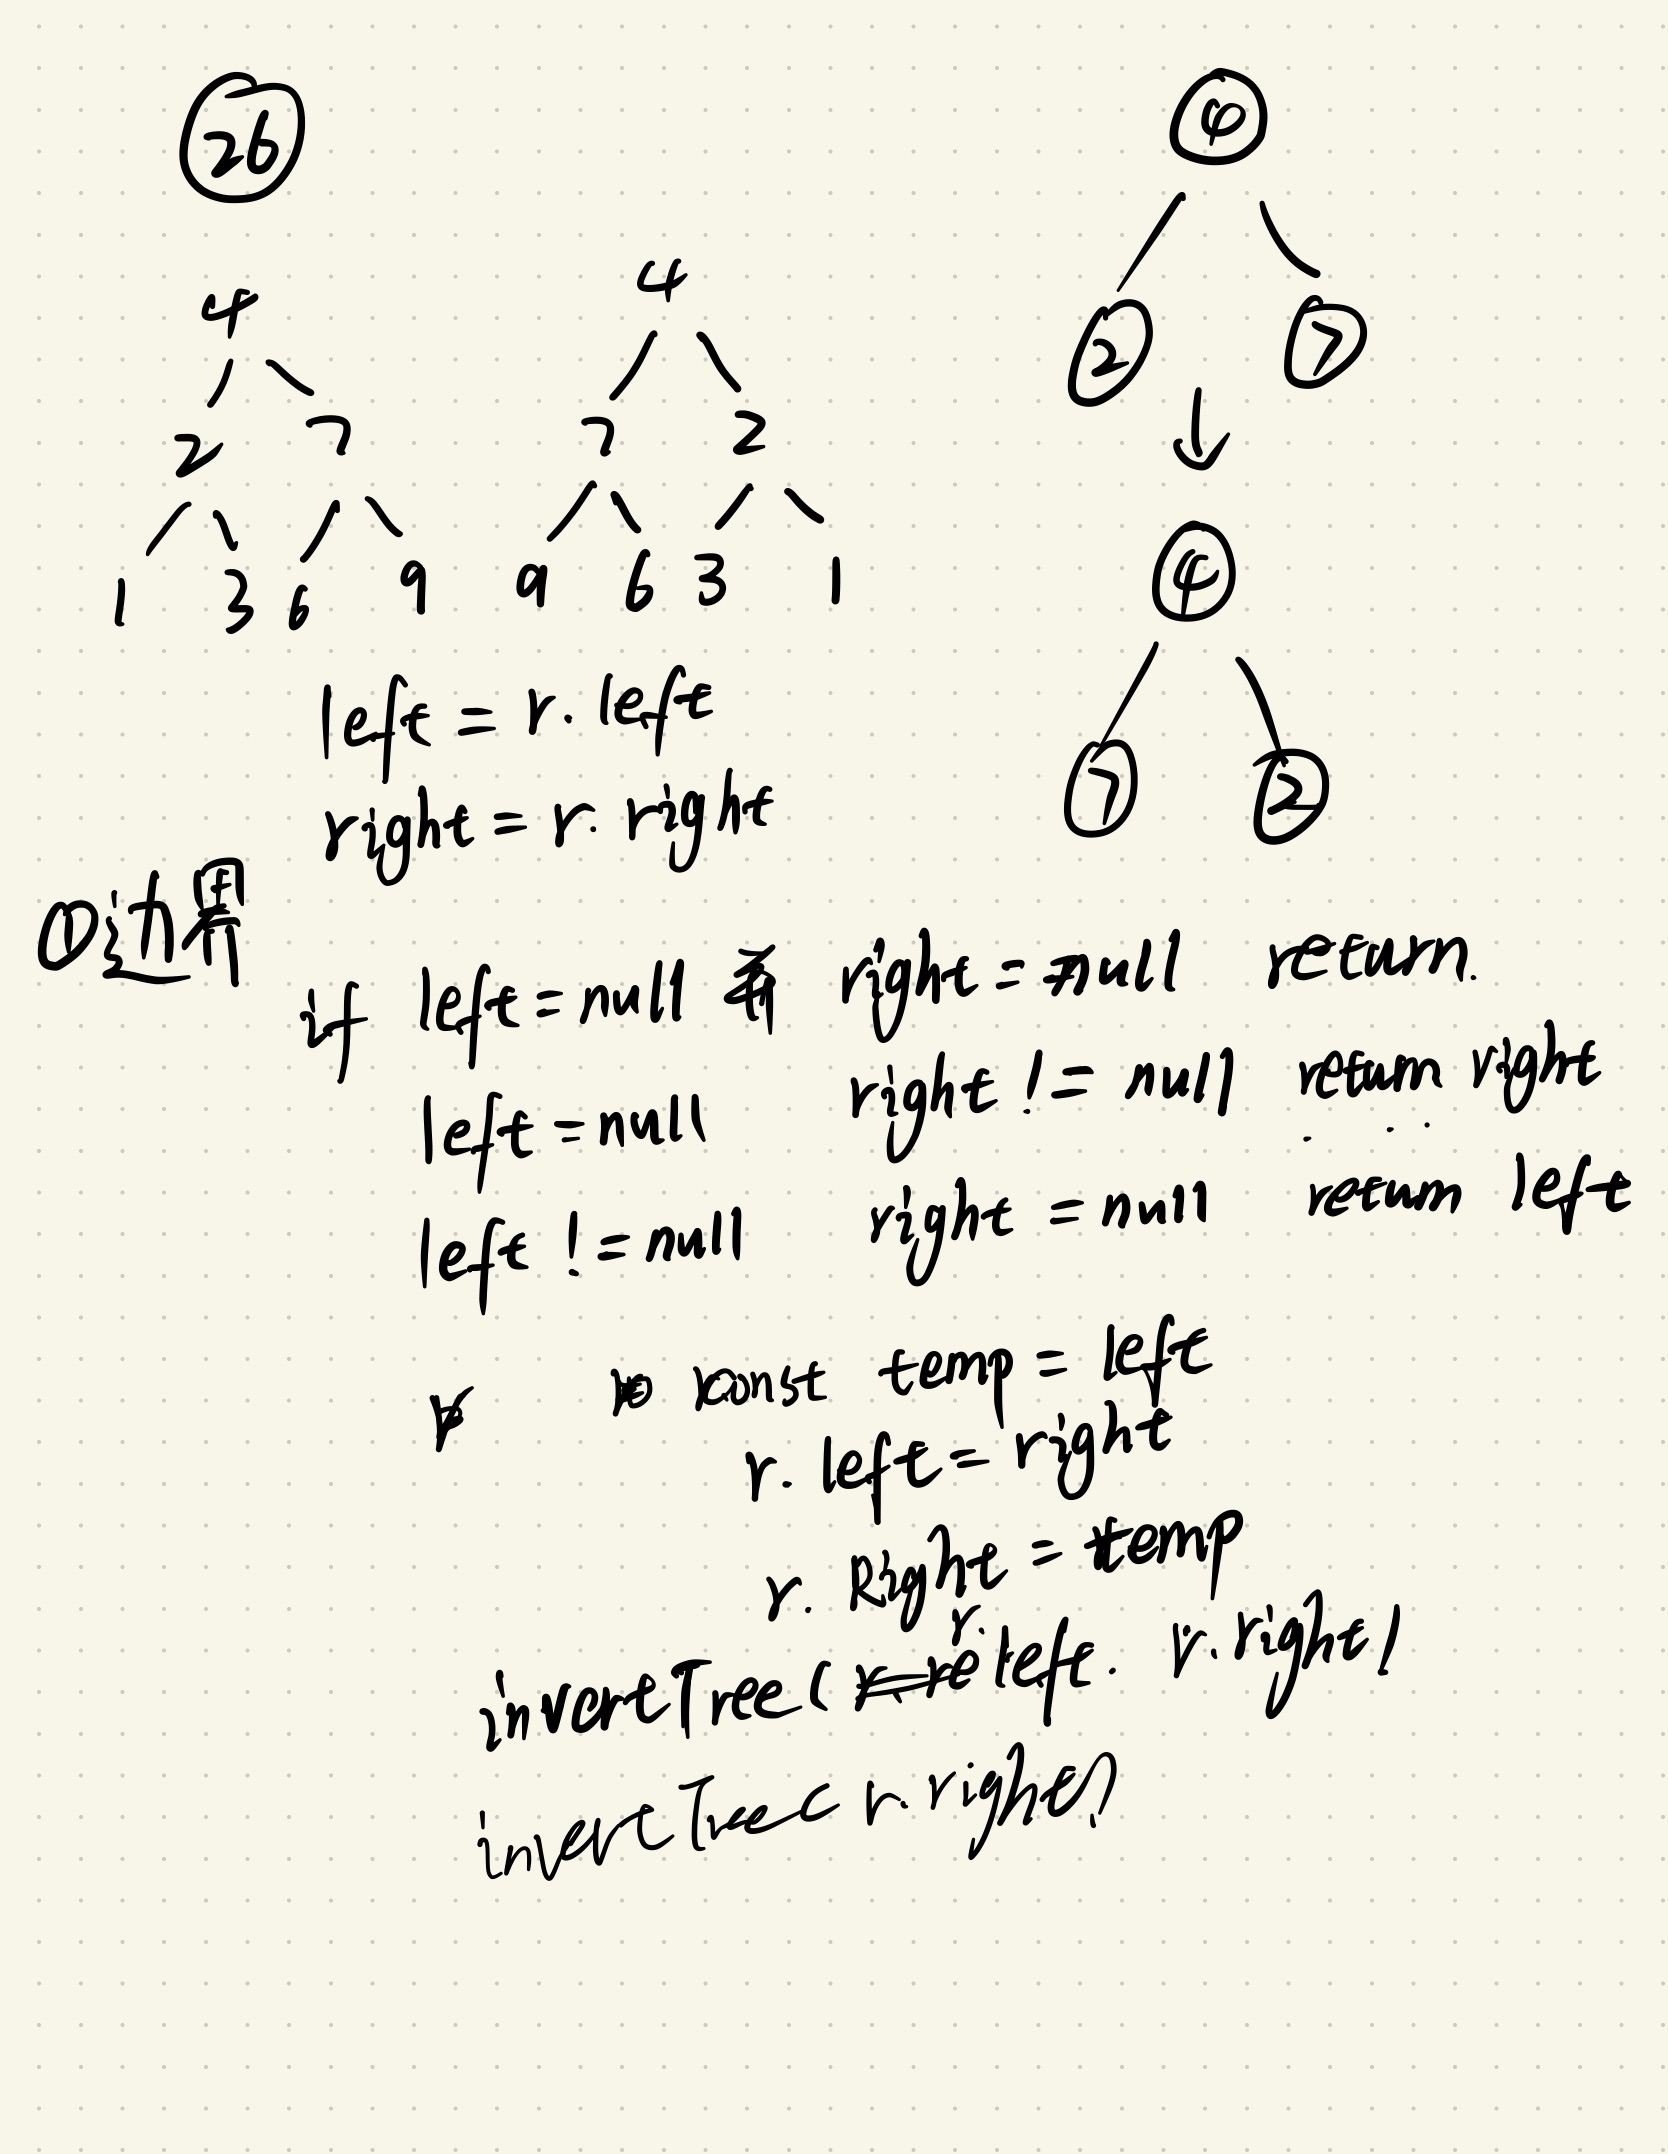 26
4
2 7
1 3 6 9
4
7 2
9 6 3 1
4
2 7
4
7 2
left = r. left
right = r. right
①边界
if left = null right = null return.
left = null right != null return right
left != null right = null return left
const temp = left
r. left = right
r. Right = temp
invertTree( r. left. r. right)
invertTree( r. right)